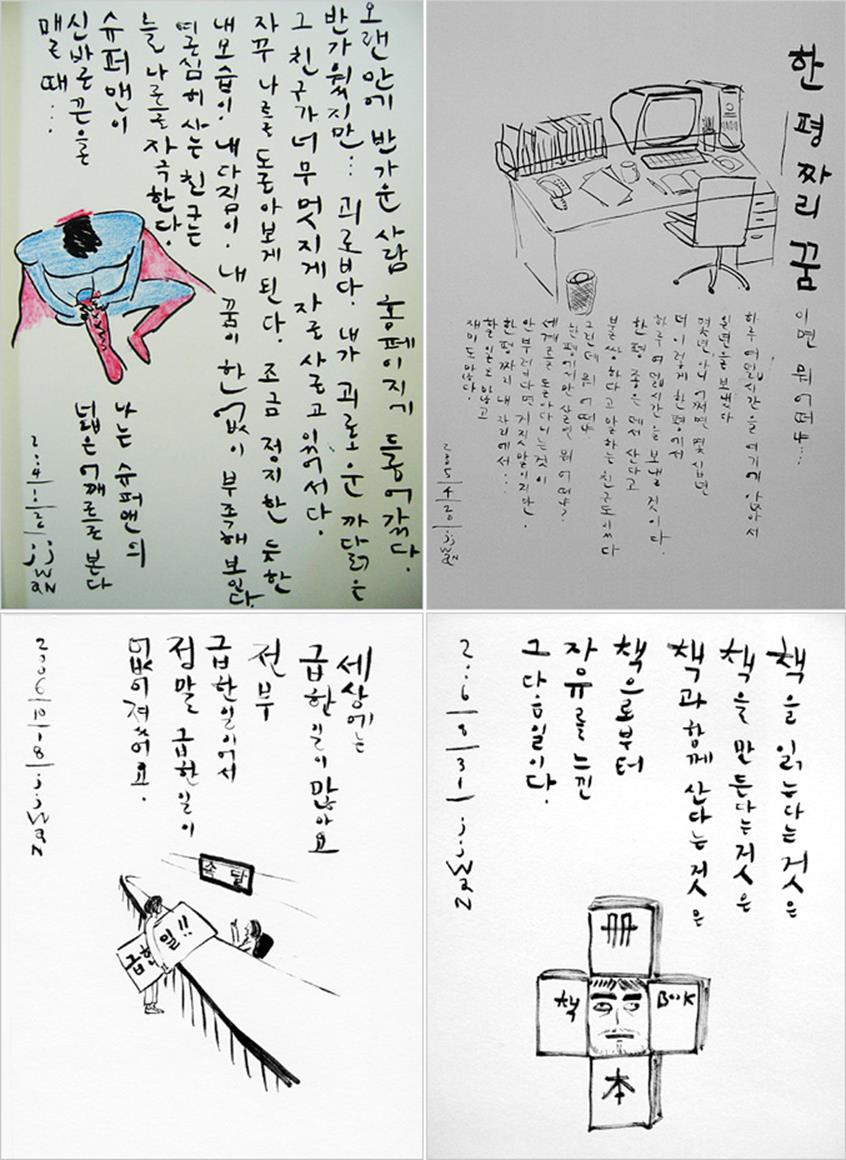 오랜만에 반가운 사람 홈페이지가 들어갔다.
반가웠지만... 괴로웠다. 내가 괴로운 까닭은
그 친구가 너무 멋지게 잘 살고 있어서다.
자꾸 나를 돌아보게 된다. 조금 정지한 듯한
내 모습이. 내 다짐이. 내 꿈이 한없이 부족해 보인다.
열심히 사는 친구는
늘 나를 자극한다.
슈퍼맨이
신발끈을
맬 때...
나는 슈퍼맨의
넓은 어깨를 본다
jjwan
한 평짜리 꿈
이면 뭐 어떠냐...
하루 여덟시간을 여기에 앉아서
일년을 보냈다
몇년 아니 어쩌면 몇십년
더 이렇게 한평에서
하루 여덟시간을 보낼 것이다.
한평 좁은데서 산다고
불쌍하다고 말하는 친구도 있다
그런데 뭐 어떠냐
한평에서만 살면 뭐 어떠냐?
세계를 돌아다니는 것이
안 부럽다면 거짓말이지만.
한평짜리 내 자리에서...
할일도 많고
재미도 많다.
2005/4/20/jjwan
세상에는
급한 일이 많아요
전부
급한일이어서
정말 급한일이
없어져 버렸어요.
2006/10/8/jjwan
속달
급한
일!!
책을 읽는다는 것은
책을 만든다는 것은
책과 함께 산다는 것은
책으로부터
자유를 느낀
그 다음일이다.
2006/8/31/jjwan
冊
책
BOOK
本